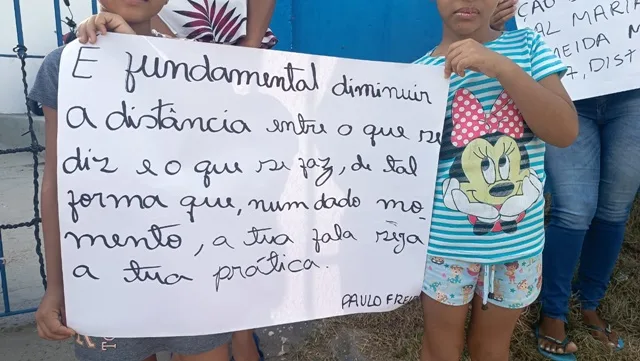 E fundamental diminuir
a distância entre o que se
diz e o que se faz, de tal
forma que, num dado mo-
mento, a tua fala seja
a tua prática.
PAULO FREI
ÇÃO
AL MARIA
MEIDA M
7, DIST